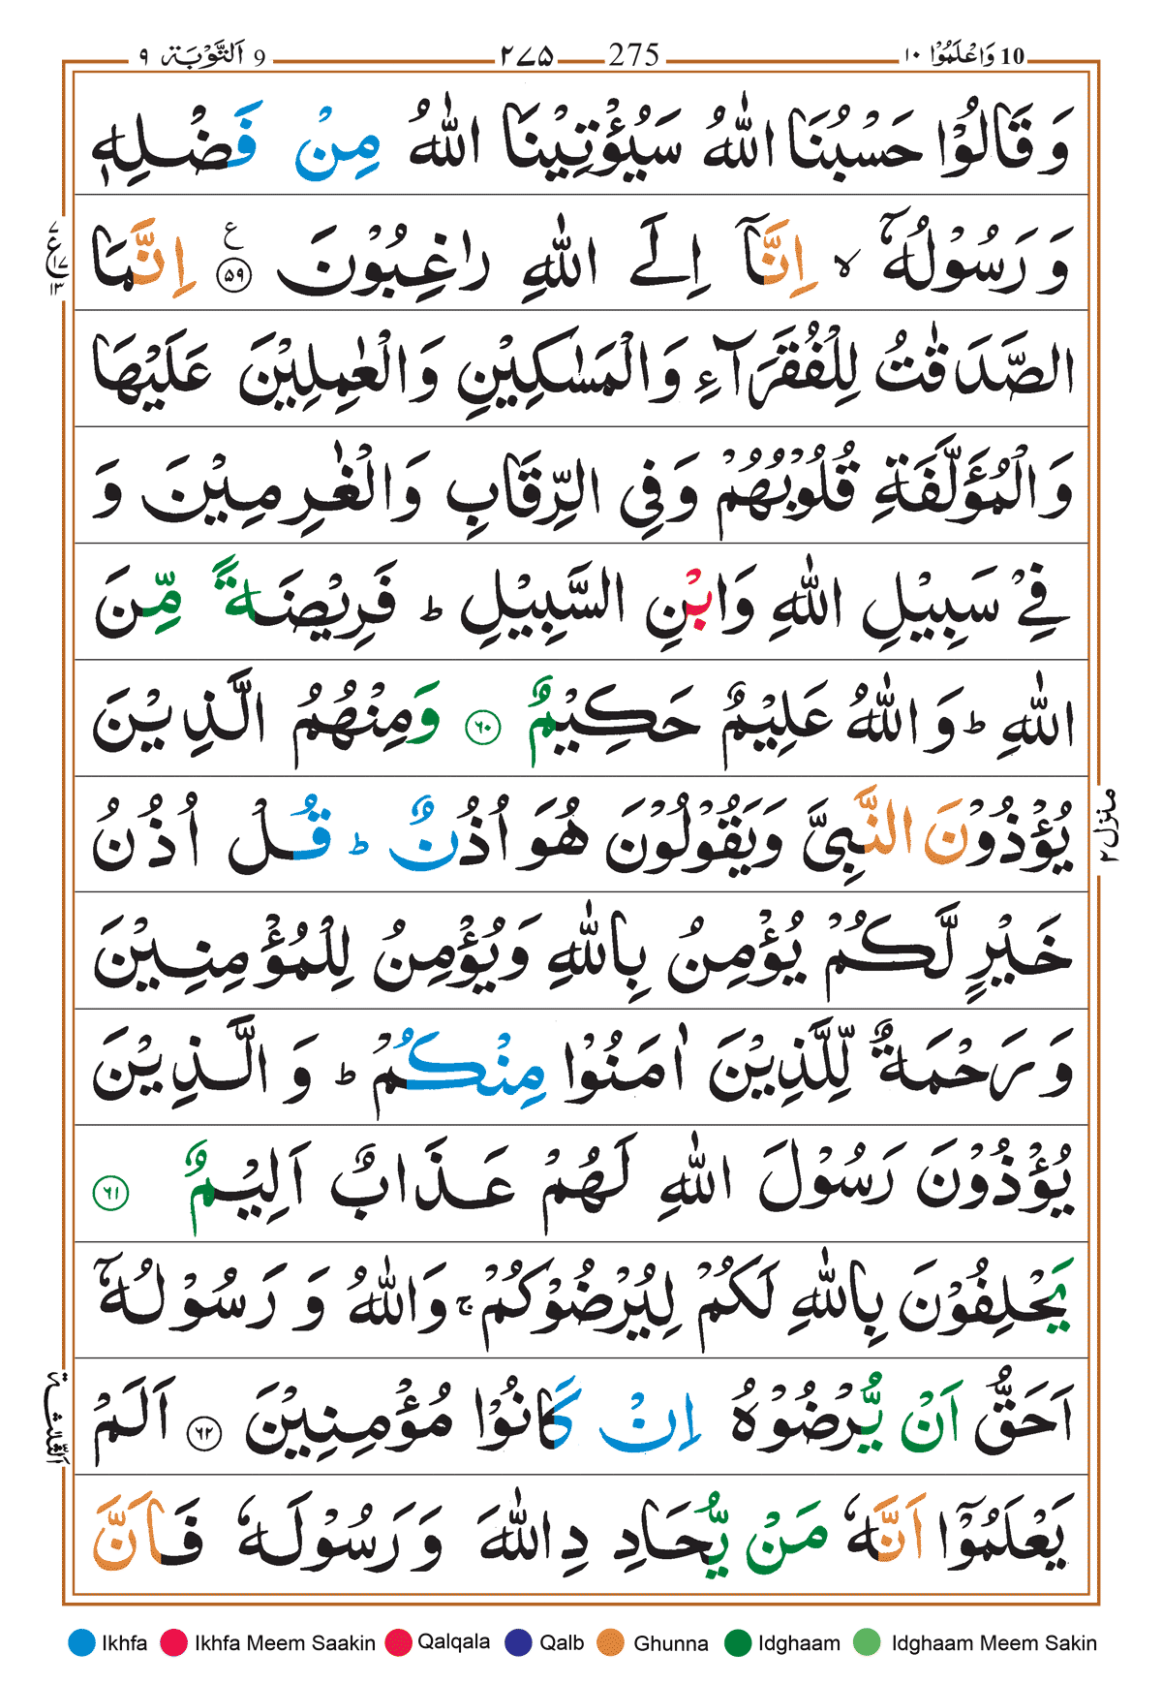 9 اَلتَّوْبَة ٩ 275 ٢٧٥ 10 وَاعْلَمُوْٓا ١٠
وَ قَالُوْا حَسْبُنَا اللّٰهُ سَيُؤْتِيْنَا اللّٰهُ مِنْ فَضْلِهٖ
وَ رَسُوْلُهٗٓ ۙ اِنَّاۤ اِلَى اللّٰهِ رٰغِبُوْنَ ۧ ﴿٥٩﴾ اِنَّمَا
الصَّدَقٰتُ لِلْفُقَرَآءِ وَالْمَسٰكِيْنِ وَالْعٰمِلِيْنَ عَلَيْهَا
وَالْمُؤَلَّفَةِ قُلُوْبُهُمْ وَفِي الرِّقَابِ وَالْغٰرِمِيْنَ وَ
فِيْ سَبِيْلِ اللّٰهِ وَابْنِ السَّبِيْلِ ؕ فَرِيْضَةً مِّنَ
اللّٰهِ ؕ وَاللّٰهُ عَلِيْمٌ حَكِيْمٌ ﴿٦٠﴾ وَمِنْهُمُ الَّذِيْنَ
يُؤْذُوْنَ النَّبِيَّ وَيَقُوْلُوْنَ هُوَ اُذُنٌ ؕ قُلْ اُذُنُ
خَيْرٍ لَّكُمْ يُؤْمِنُ بِاللّٰهِ وَيُؤْمِنُ لِلْمُؤْمِنِيْنَ
وَ رَحْمَةٌ لِّلَّذِيْنَ اٰمَنُوْا مِنْكُمْ ؕ وَ الَّذِيْنَ
يُؤْذُوْنَ رَسُوْلَ اللّٰهِ لَهُمْ عَذَابٌ اَلِيْمٌ ﴿٦١﴾
يَحْلِفُوْنَ بِاللّٰهِ لَكُمْ لِيُرْضُوْكُمْ ۚ وَاللّٰهُ وَ رَسُوْلُهٗٓ
اَحَقُّ اَنْ يُّرْضُوْهُ اِنْ كَانُوْا مُؤْمِنِيْنَ ﴿٦٢﴾ اَلَمْ
يَعْلَمُوْٓا اَنَّهٗ مَنْ يُّحَادِدِ اللّٰهَ وَ رَسُوْلَهٗ فَاَنَّ
منزل ٢
الثلثة
Ikhfa Ikhfa Meem Saakin Qalqala Qalb Ghunna Idghaam Idghaam Meem Sakin